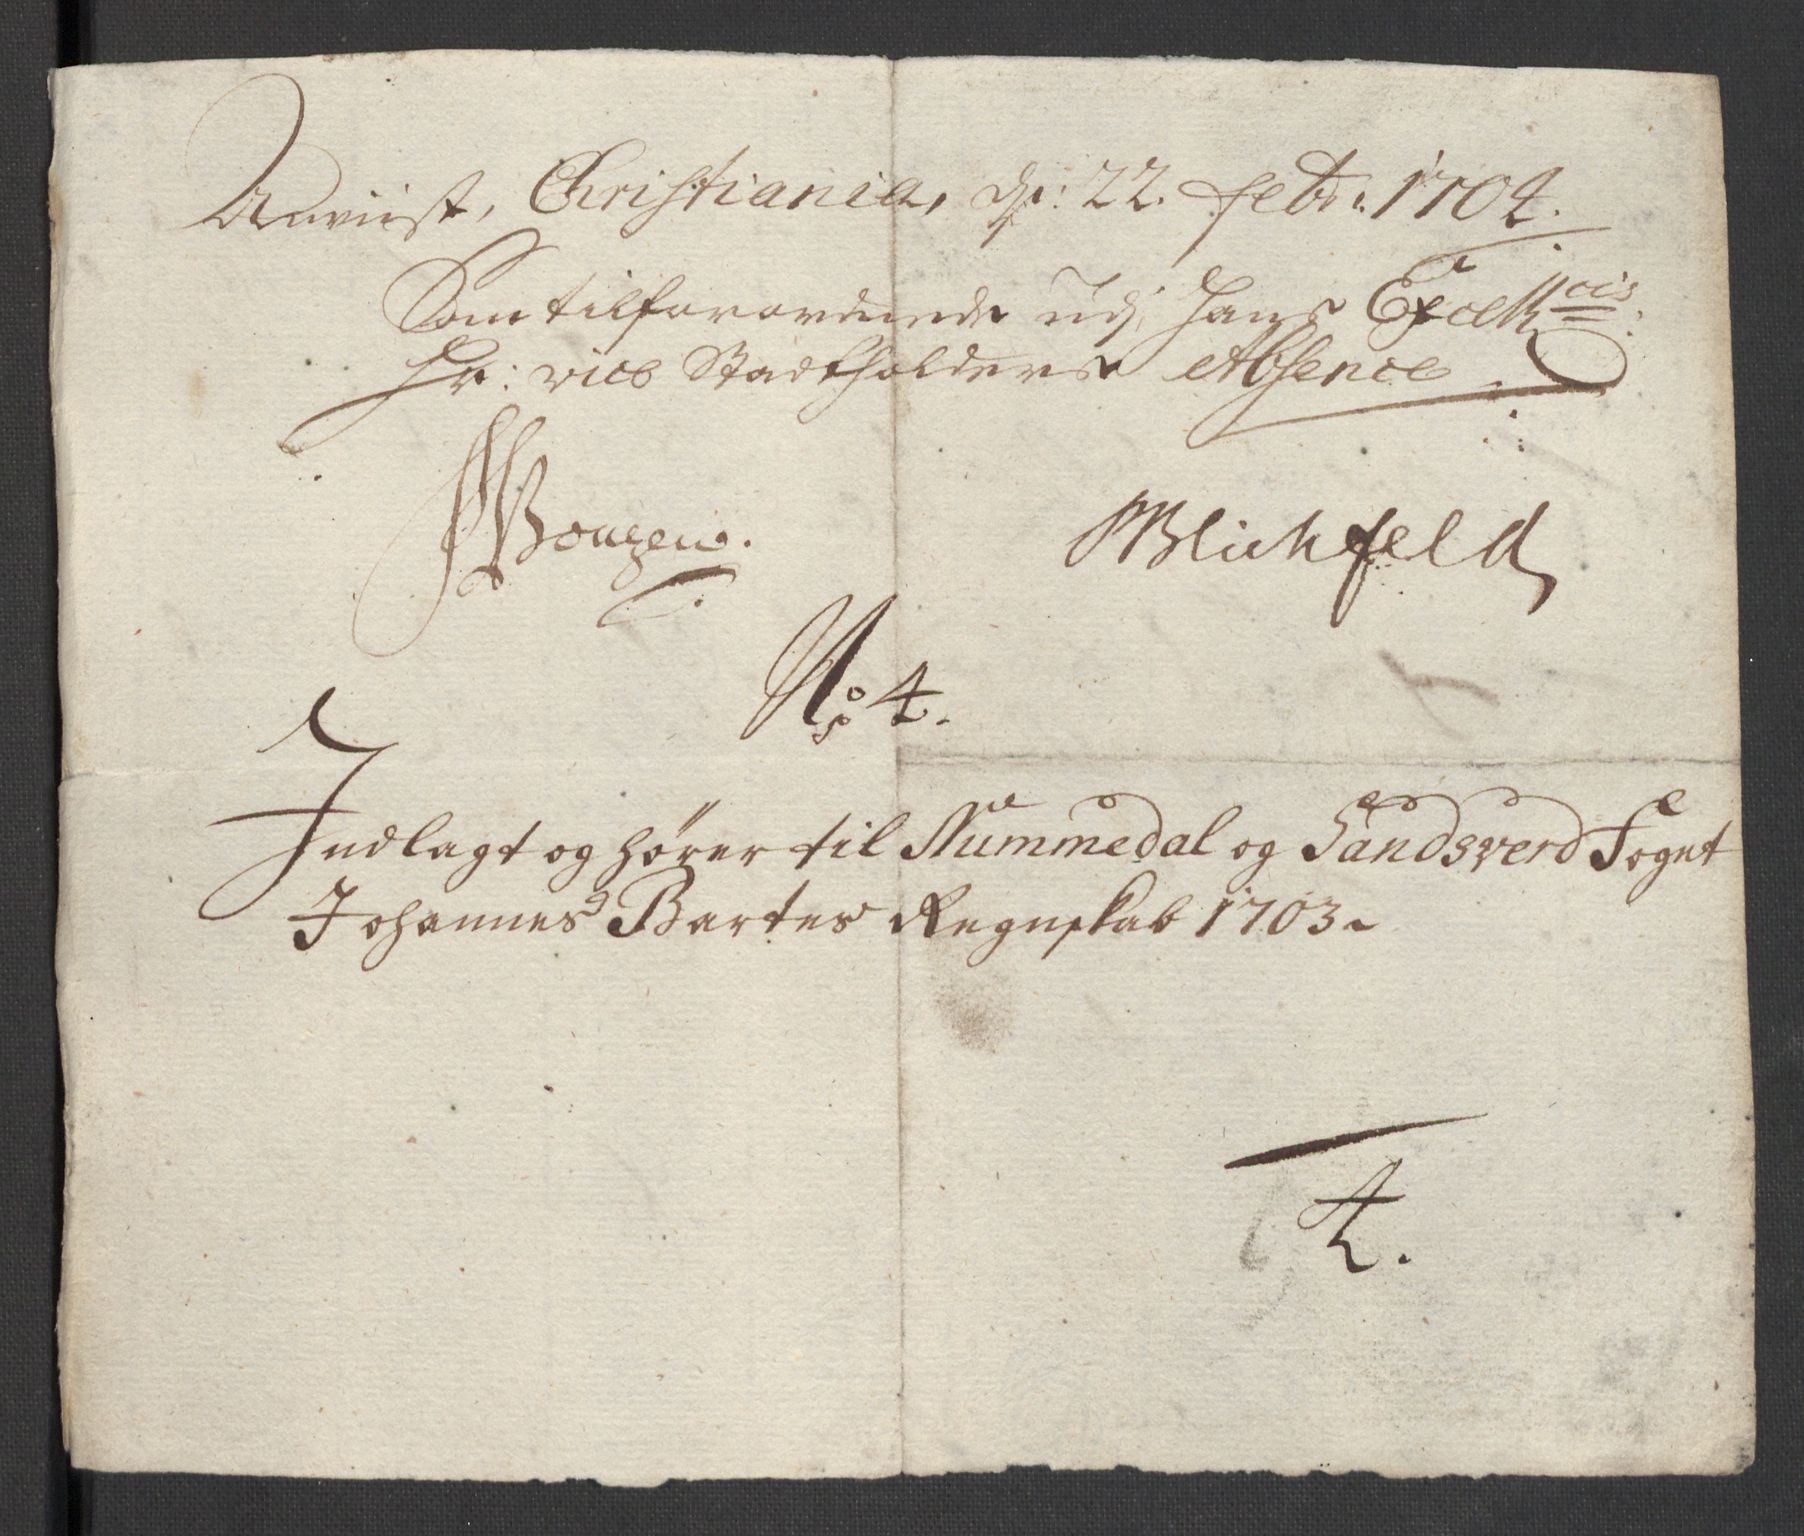 Anviist, Christiania, dn: 22. febr: 1704.
Som tilforordnede udj Hans Excell:cis
Hr: vice Stadtholders Absence
Bonzen.
MBlichfeld
No: 4.
Indlagt og hører til Nummedal og Sandsverd Fogut
Johannes Bartes Regnskab 1703
4.